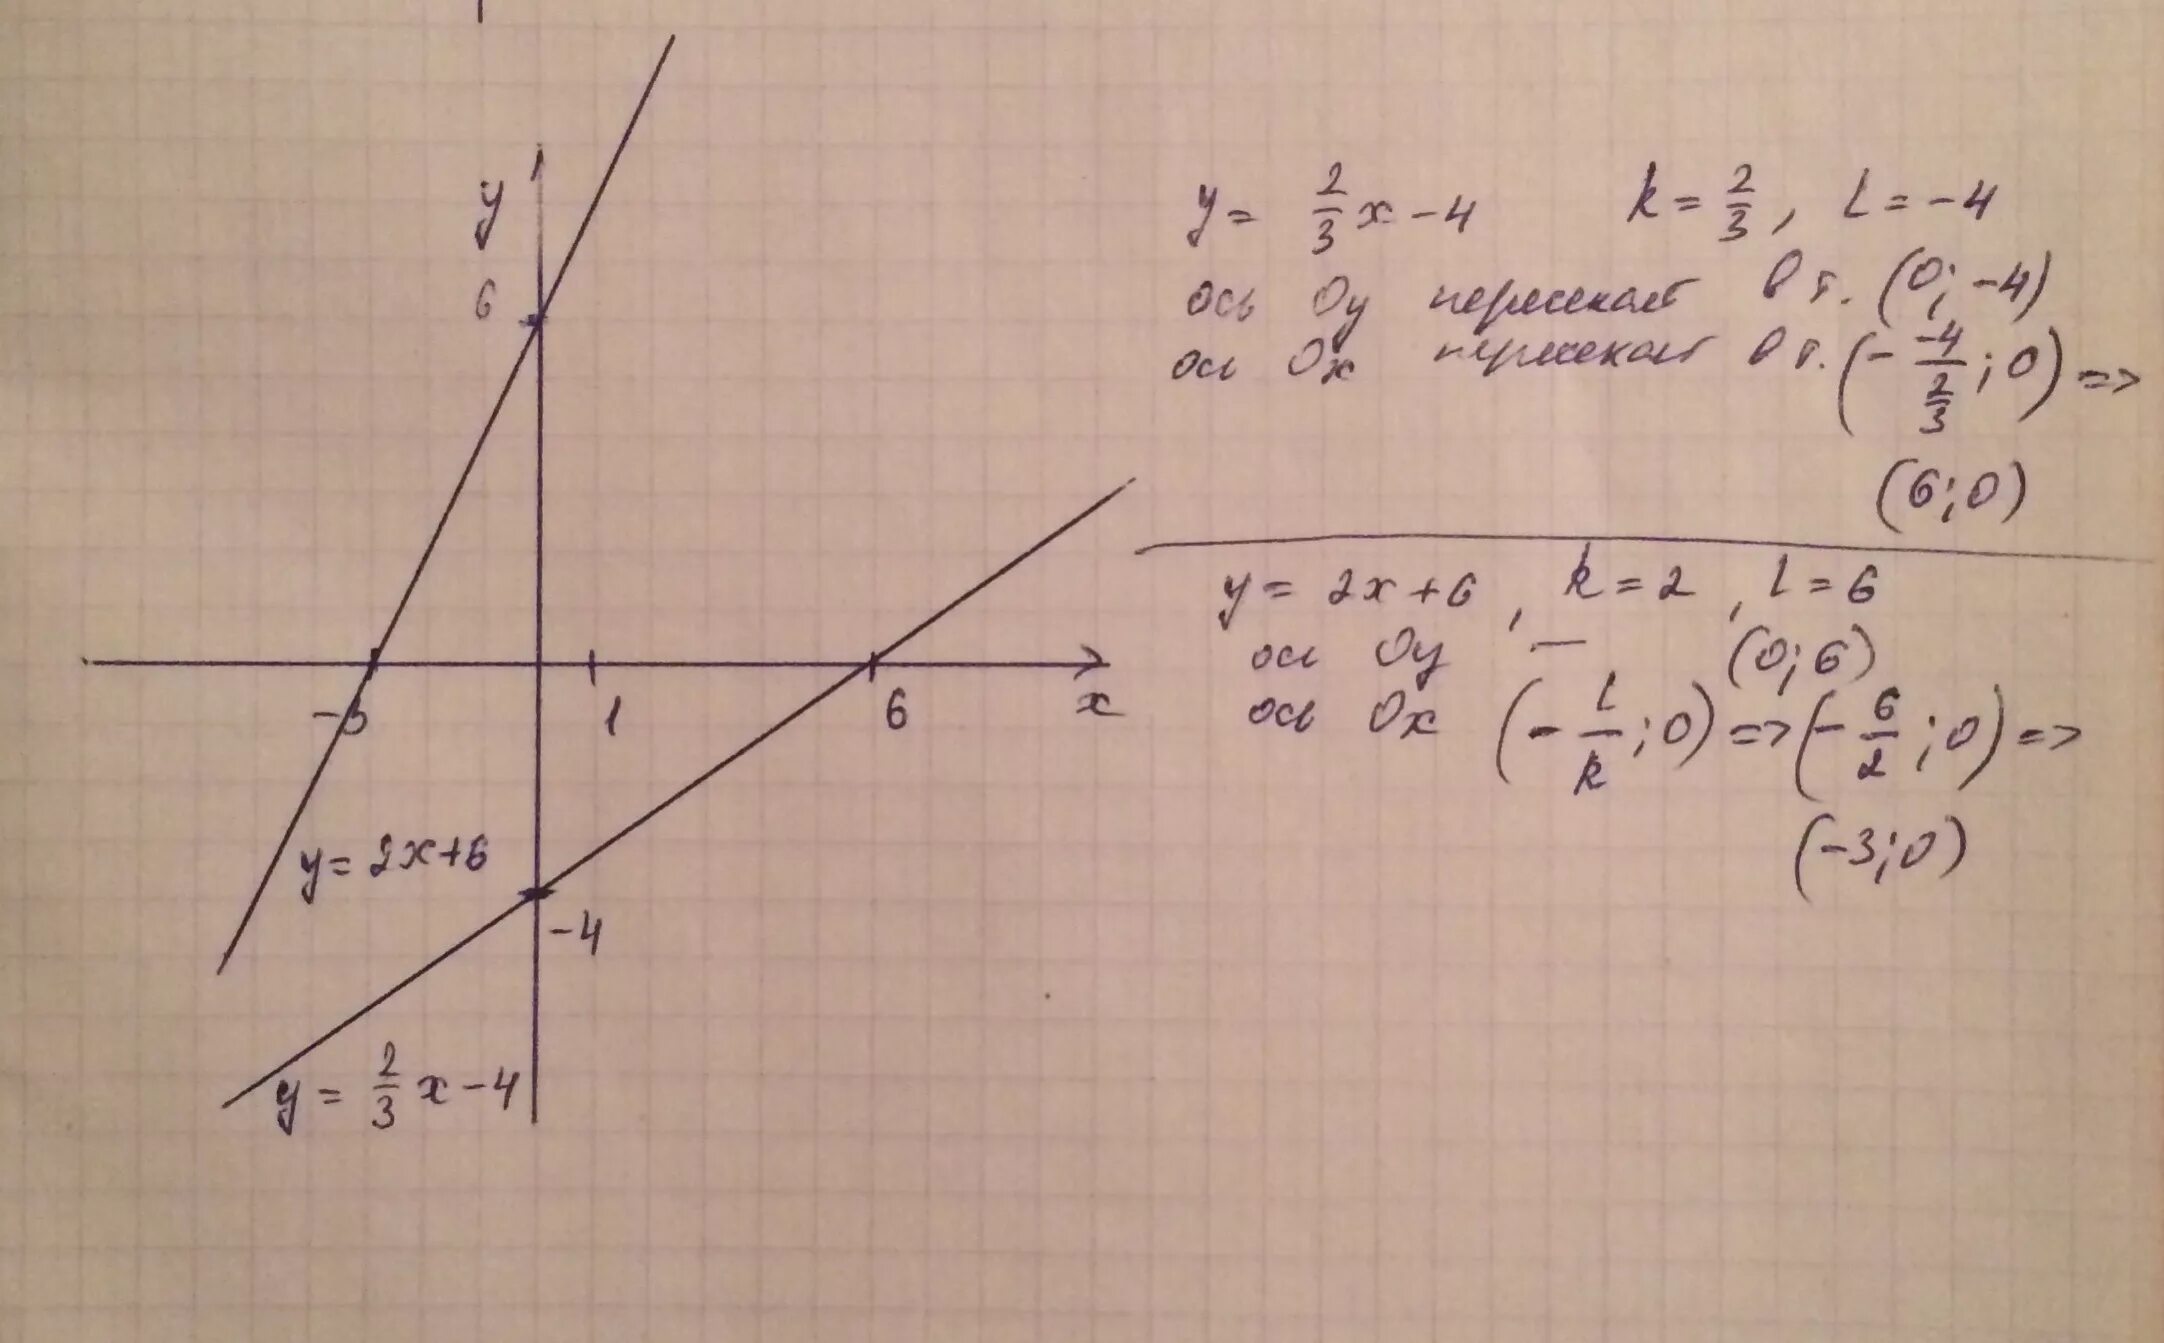 y
6
-3
1
6
x
y = 2x+6
-4
y = 2/3 x - 4
y = 2/3 x - 4 k = 2/3 , l = -4
ось Oy пересекает в т. (0; -4)
ось Ox пересекает в т. (- -4/(2/3) ; 0) =>
(6; 0)
y = 2x + 6 , k = 2 , l = 6
ось Oy — (0; 6)
ось Ox (- l/k ; 0) => (- 6/2 ; 0) =>
(-3; 0)